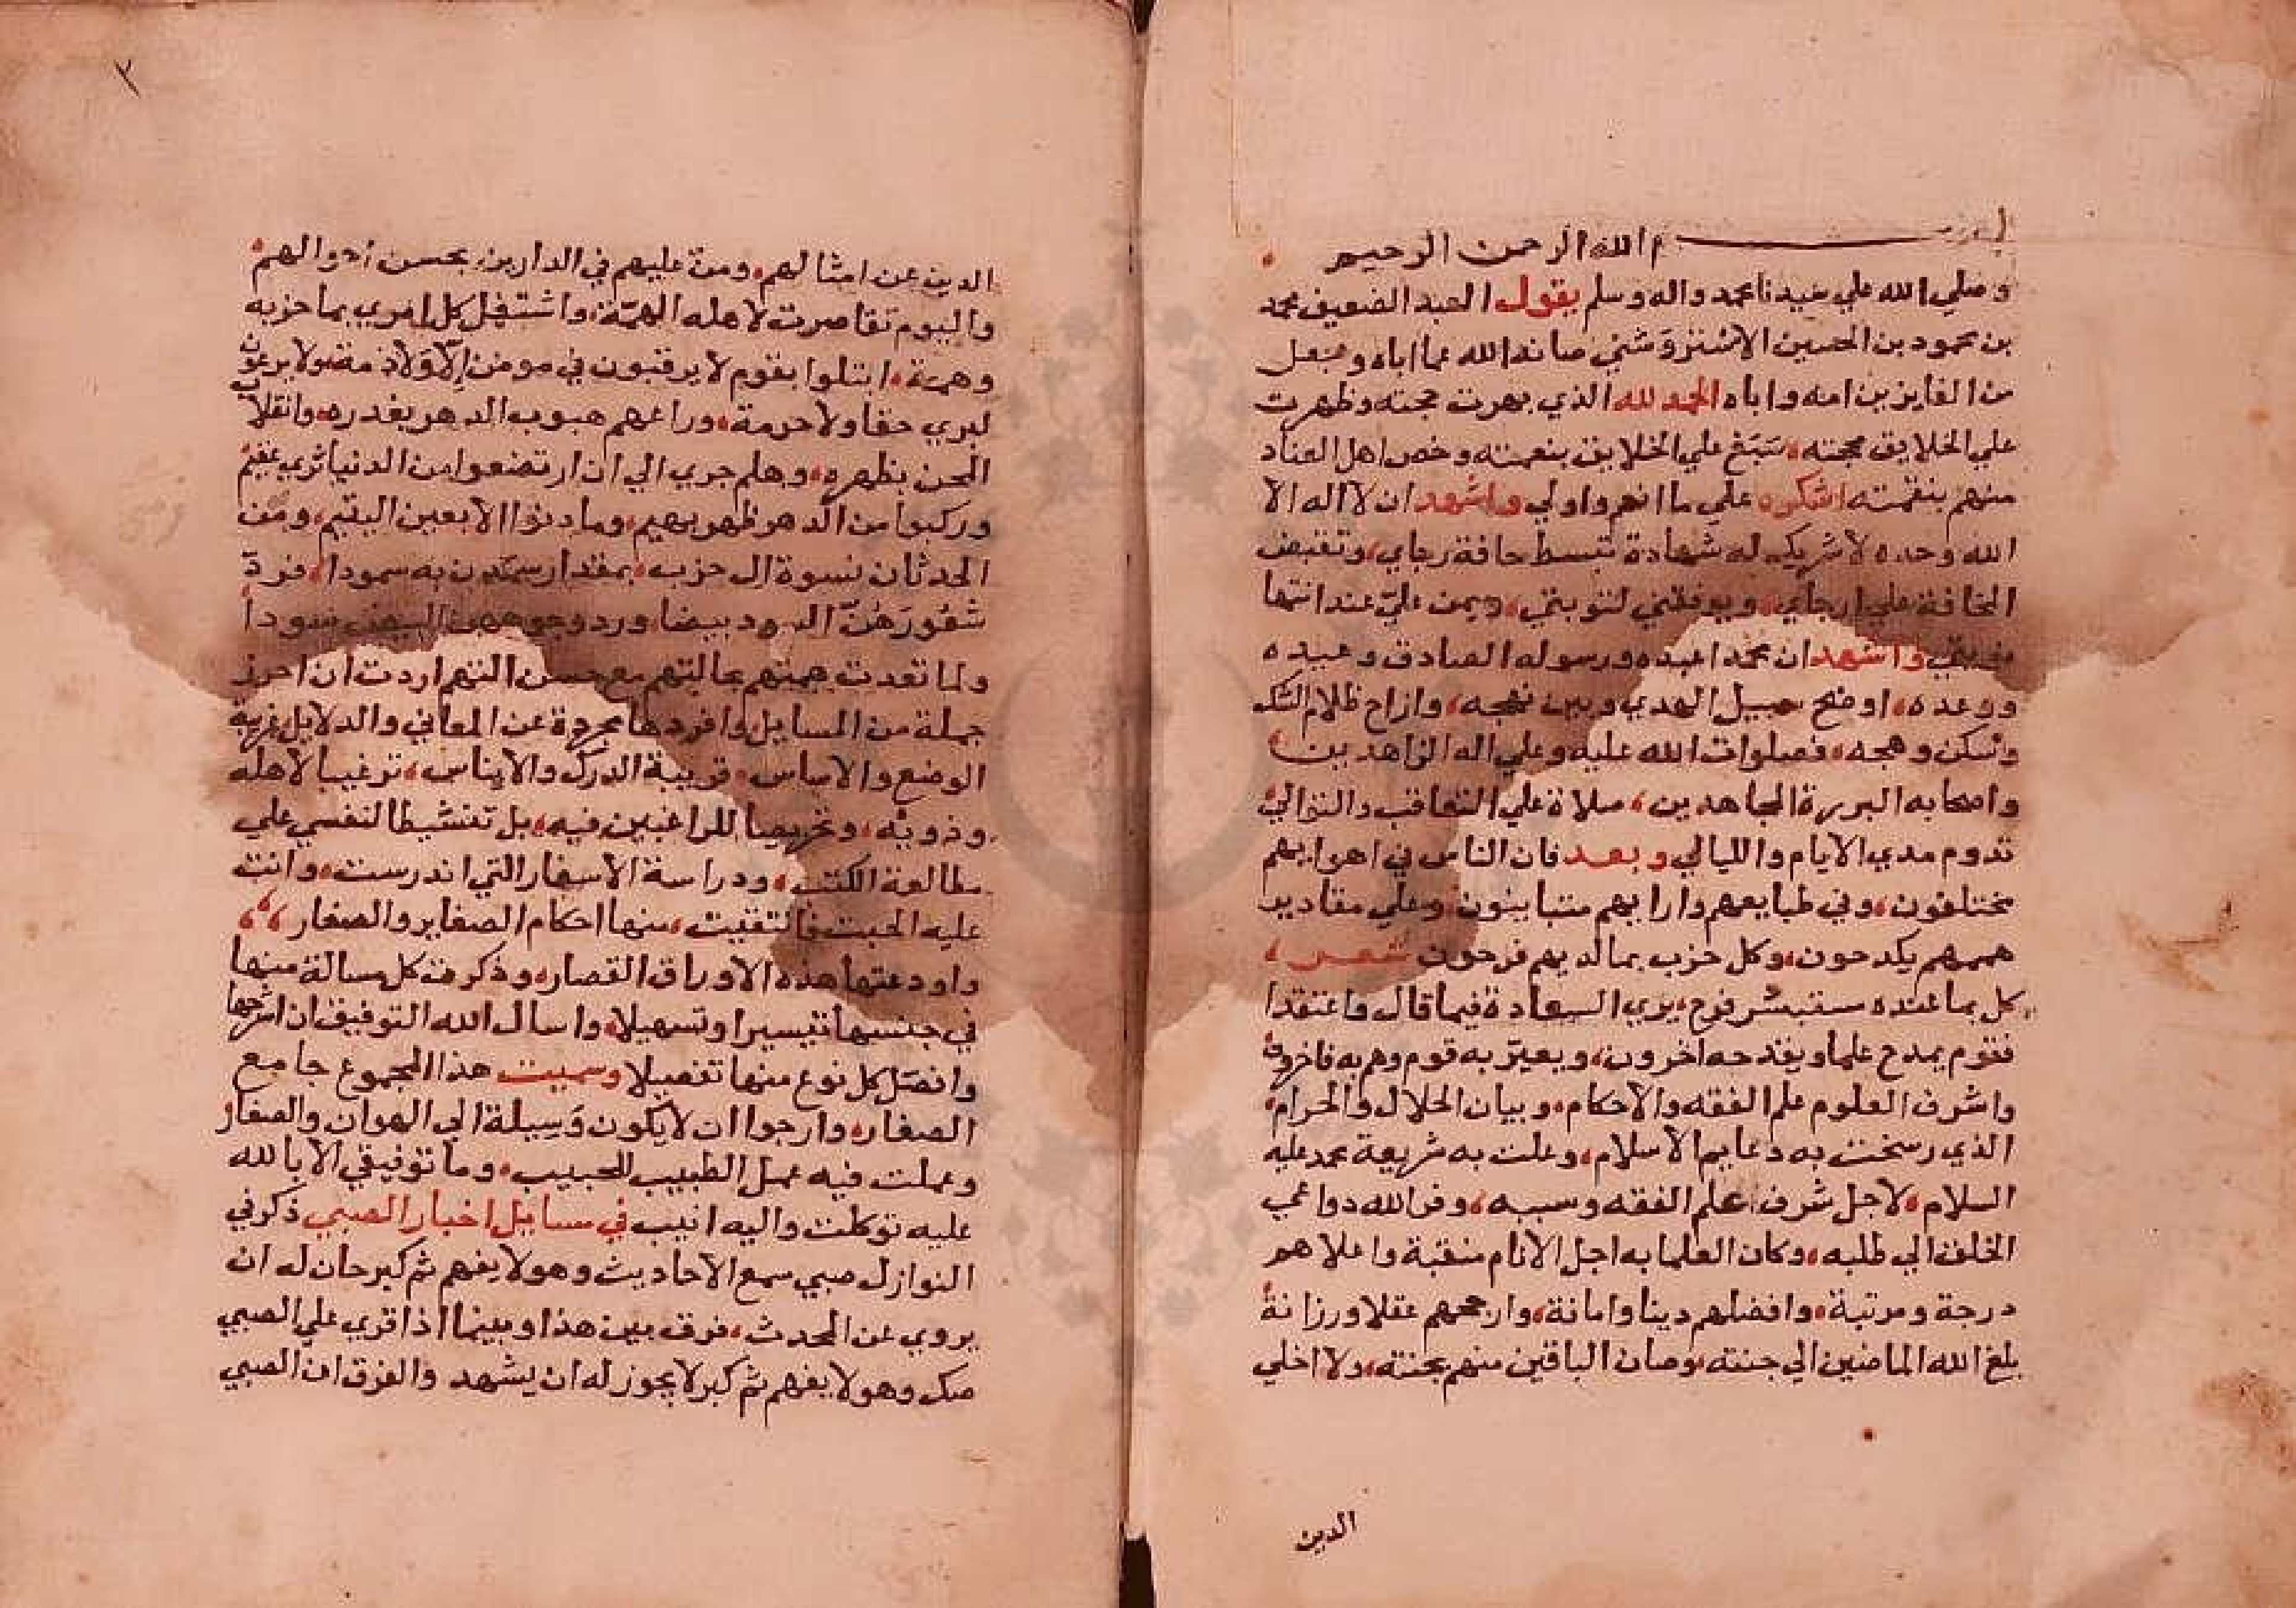 بسم الله الرحمن الرحيم
وصلي الله علي سيدنا محمد واله وسلم يقول العبد الضعيف محمد
بن محمود بن الحسين الاشتروشني صانه الله عما اباه وجعل
من الفايزين امه واباه الحمد لله الذي بهرت حجته وظهرت
علي الخلايق محجته، سبغ علي الخلايق بنعمته وخص اهل العناد
منهم بنقمته اشكره علي ما انعم واولي واشهد ان لا اله الا
الله وحده لا شريك له شهادة تبسط حافة رجاي، وتقبض
المخافة علي ارجاي، ويوفقني لتوبتي، ويمن علي عند انتها
واشهد ان محمدا عبده ورسوله الصادق وعيده
ووعده، اوضح سبيل الهدي وبين نهجه، وازاح ظلام الشك
وسكن وهجه، فصلوات الله عليه وعلي اله الزاهدين
واصحابه البررة المجاهدين، صلاة علي التعاقب والتوالي
تدوم مدي الايام والليالي وبعد فان الناس في اهوايهم
مختلفون، وفي طبايعهم وارايهم متباينون، وعلي مقادير
هممهم يكدحون، وكل حزب بما لديهم فرحون شعر
كل بما عنده مستبشر فرح، يري السعادة فيما قال واعتقدا
فقوم يمدح علما ويقدحه اخرون، ويعير به قوم وهم به فاخرون
واشرف العلوم علم الفقه والاحكام، وبيان الحلال والحرام
الذي رسخت به دعايم الاسلام، وعلت به شريعة محمد عليه
السلام، لاجل شرف علم الفقه وسببه، وفر الله دواعي
الخلق الي طلبه، وكان العلما به اجل الانام منقبة واعلاهم
درجة ومرتبة، وافضلهم دينا وامانة، وارجحهم عقلا ورزانة
بلغ الله الماضين الي جنته، وصان الباقين منهم بجنته، ولا اخلي
الدين
٢
الدين عن امثالهم، ومن عليهم في الدارين بحسن احوالهم
واليوم تقاصرت لاهله الهمة، واشتغل كل امري بما حزبه
وهمه، ابتلوا بقوم لا يرقبون في مومن إلّا ولا ذمة، ولا يرعون
لبري حقا ولا حرمة، وراعهم هبوب الدهر بغدره، وانقلاب
المحن بظهره، وهلم جري الي ان ارتضعوا من الدنيا ثدي عقيم
وركبوا من الدهر ظهر بهيم، وما رنوا الا بعين اليتيم، ومن
الحدثان نسوة ال حزب، بمقدار سمدن به سمودا، فرد
شعورهن السود بيضا، ورد وجوههن البيض سودا
ولما تعدت همتهم حالتهم مع حسن التهم اردت ان احرز
جملة من المسايل وافردها مجردة عن المعاني والدلايل
الوضع والاساس، قريبة الدرك والايناس، ترغيبا لاهله
وذويه، وتحريصا للراغبين فيه، بل تنشيطا لنفسي علي
مطالعة الكتب، ودراسة الاسفار التي اندرست، وانت
عليه الحبت فالتقيت، منها احكام الصغاير والصغار
واودعتها هذه الاوراق القصار، وذكرت كل مسالة منها
في جنسها تيسيرا وتسهيلا، واسال الله التوفيق ان اشرحها
وافصل كل نوع منها تفصيلا وسميت هذا المجموع جامع
الصغار، وارجوا ان لا يكون وسيلة الي الهوان والصغار
وعملت فيه عمل الطبيب للحبيب، وما توفيقي الا بالله
عليه توكلت واليه انيب في مسايل اخبار الصبي ذكر في
النوازل صبي سمع الاحاديث وهو لا يفهم ثم كبر حان له ان
يروي عن المحدث، فرق بين هذا وبينما اذا قري علي الصبي
صك وهو لا يفهم ثم كبر لا يجوز له ان يشهد والفرق ان الصبي